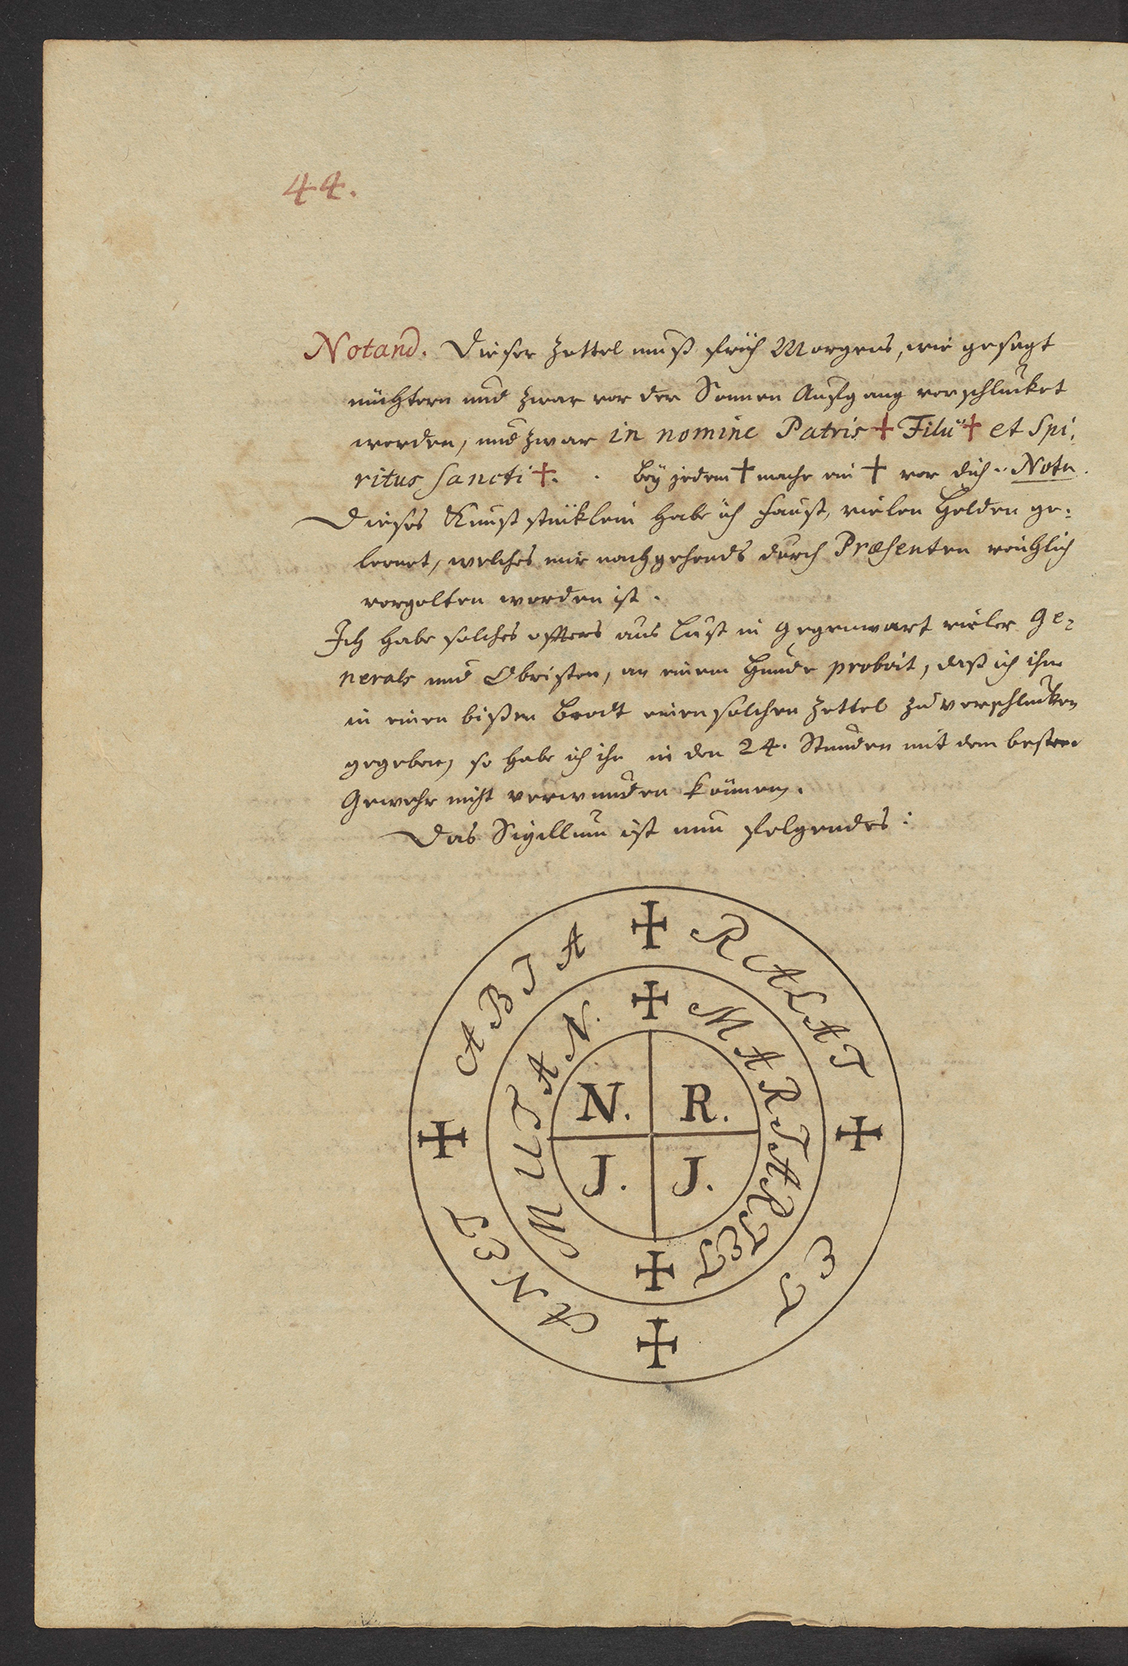 44.
Notand. Dieser Zettel muß früh Morgens, wie gesagt
nüchtern und zwar vor der Sonnen Aufgang verschlucket
werden, und zwar in nomine Patris ✝ Filii ✝ et Spi:
ritus Sancti ✝. Bey jedem ✝ mache ein ✝ vor dich. Nota.
Dieses Kunststüklein habe ich Faust, vielen Helden ge:
lernet, welches mir nachgehends durch Præsenten reichlich
vergolten worden ist.
Ich habe solches offters aus Lust in Gegenwart vieler Ge:
nerals und Obristen, an einem Hunde probirt, daß ich ihm
in einen bißen Brodt einen solchen Zettel zu verschlucken
gegeben, so habe ich ihn in den 24. Stunden mit dem besten
Gewehr nicht verwunden können.
Das Sigillum ist nun folgendes:
✠ RALAT ✠ ET ✠ ANET ✠ ABIA
✠ MARIARIET ✠ N.
N. R.
J. J.